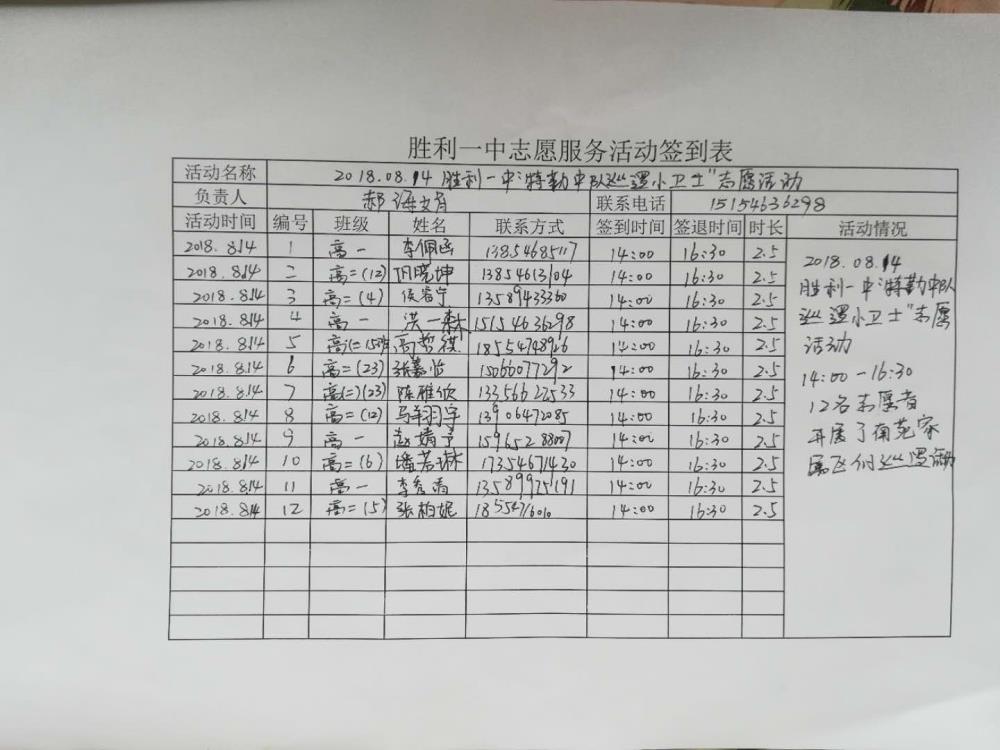 胜利一中志愿服务活动签到表
活动名称 2018.08.14 胜利一中"特勤中队巡逻小卫士"志愿活动
负责人 郝海文 联系电话 15154636298
活动时间 编号 班级 姓名 联系方式 签到时间 签退时间 时长 活动情况
2018.8.14 1 高一 李佩函 13854685117 14:00 16:30 2.5
2018.8.14 2 高二(12) 晓坤 13854613104 14:00 16:30 2.5
2018.8.14 3 高二(4) 侯睿宁 13589433360 14:00 16:30 2.5
2018.8.14 4 高一 洪一森 15154636298 14:00 16:30 2.5
2018.8.14 5 高二 高哲祺 18554748926 14:00 16:30 2.5
2018.8.14 6 高二(23) 张嘉怡 15066077292 14:00 16:30 2.5
2018.8.14 7 高(二)(23) 陈雅欣 13356622533 14:00 16:30 2.5
2018.8.14 8 高二(12) 马翔宇 13906472085 14:00 16:30 2.5
2018.8.14 9 高一 赵婧予 15965288007 14:00 16:30 2.5
2018.8.14 10 高二(6) 潘若琳 17354671430 14:00 16:30 2.5
2018.8.14 11 高一 李秀 13589925191 14:00 16:30 2.5
2018.8.14 12 高二(5) 张柏妮 18554716010 14:00 16:30 2.5
2018.08.14
胜利一中"特勤中队
巡逻小卫士"志愿
活动
14:00-16:30
12名志愿者
开展了南苑家
属区的巡逻活动